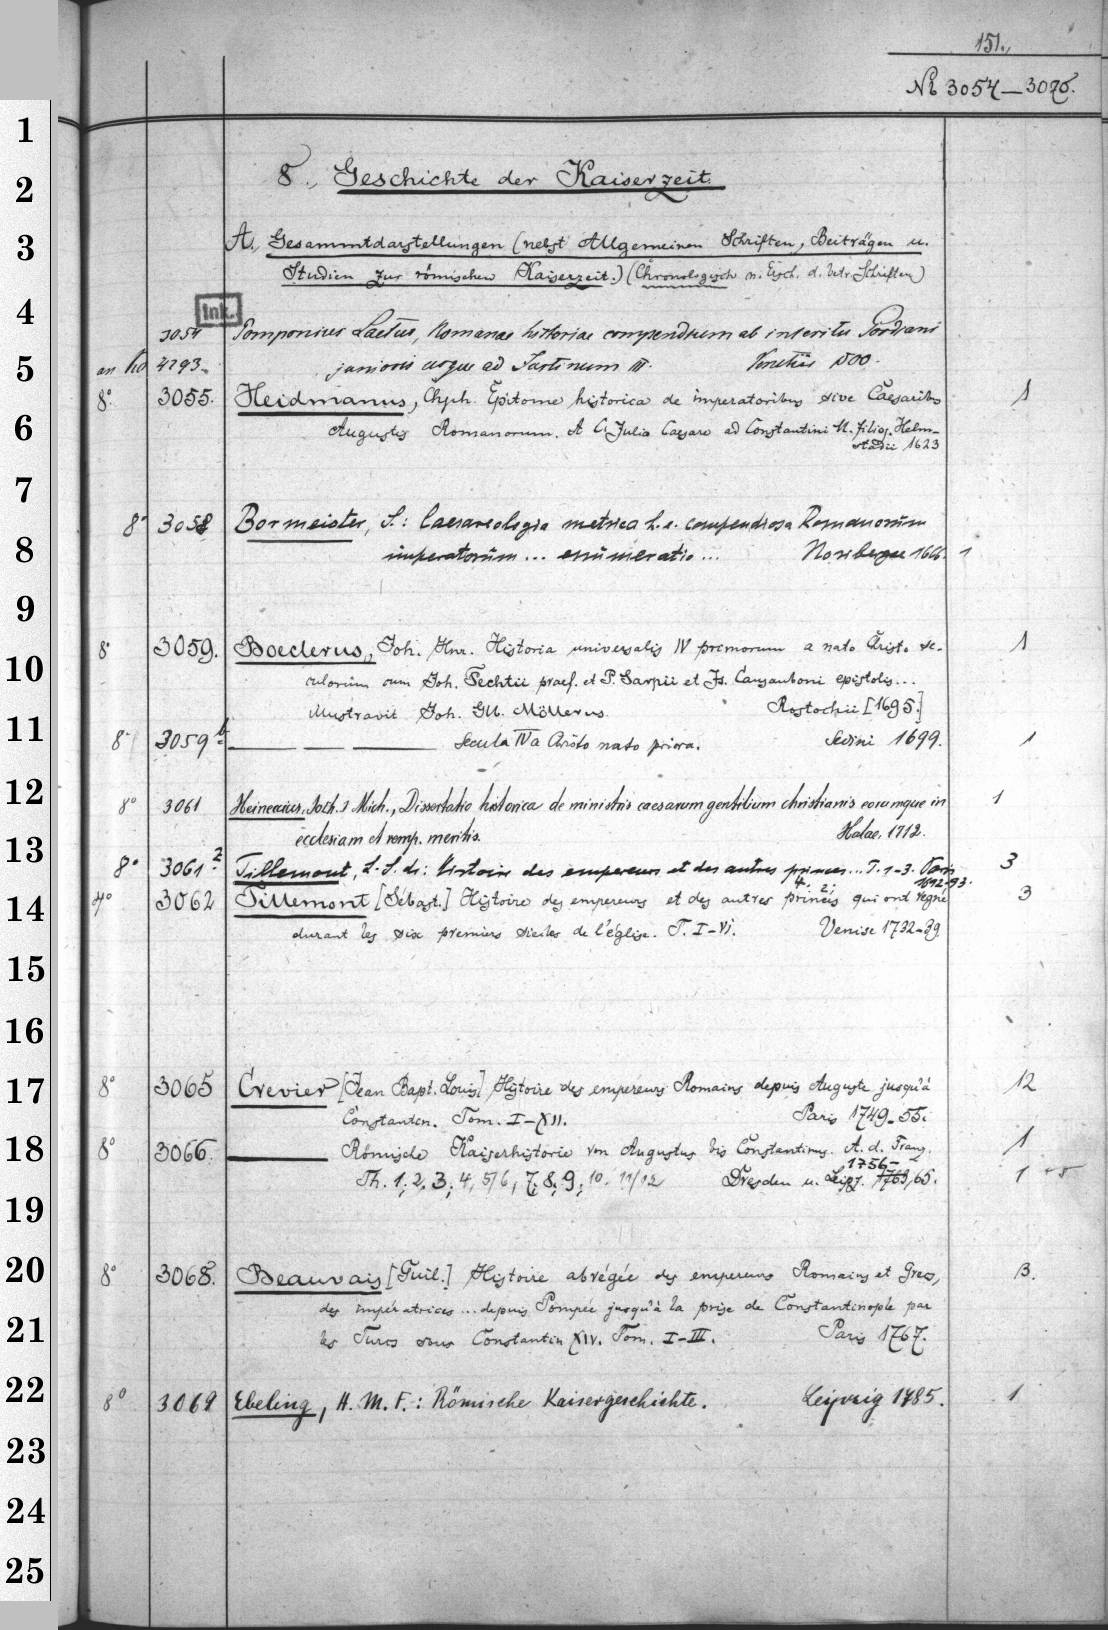 151.
№ 3054—3070.
1
2
8., Geschichte der Kaiserzeit.
3
A., Gesammtdarstellungen (nebst Allgemeinen Schriften, Beiträgen u.
Studien zur römischen Kaiserzeit.) (Chronologisch n. Ersch. d. betr. Schriften)
4
Ink.
3054 Pomponius Laetus, Romanae historiae compendium ab interitu Gordiani
5
an 4293. junioris usque ad Justinum III. Venetiis 1500.
8° 3055. Heidmanus, Chph. Epitome historica de imperatoribus sive Caesaribus 1
6
Augustis Romanorum. A C. Julio Caesare ad Constantini M. filios. Helm-
stadii 1623
7
8° 3058 Bormeister, S.: Caesareologia metrica h. e. compendiosa Romanorum
8
imperatorum ... enumeratio ... Noribergae 1666. 1
9
8° 3059. Boeclerus, Joh. Hnr. Historia universalis IV primorum a nato Christo se- 1
10
culorum cum Joh. Fechtii praef. et P. Sarpii et Js. Causauboni epistolis...
illustravit Joh. Gll. Möllerus. Rostochii [1695.]
11
8° 3059 b — — — Secula IV a Christo nato priora. Sedini 1699. 1
12
8° 3061 Heineccius, Joh. Mich., Dissertatio historica de ministris caesarum gentilium christianis eorumque in 1
ecclesiam et remp. meritis. Halae. 1712.
13
8° 3061 2 Tillemont, L. S. de: Histoire des empereurs et des autres princes... T. 1-3. Paris 3
1692-93.
14
4° 3062 Tillemont [Sébast.] Histoire des empereurs et des autres princes qui ont régné 3
durant les six premiers siecles de l'église. T. I-VI. Venise 1732-39.
15
16
17
8° 3065 Crevier [Jean Bapt. Louis] Histoire des empereurs Romains depuis Auguste jusqu'à 12
Constantin. Tom. I-XII. Paris 1749-55.
18
8° 3066. — Römische Kaiserhistorie von Augustus bis Constantinus. A. d. Franz. 1
1756-
Th. 1, 2, 3, 4, 5/6, 7, 8, 9, 10, 11/12 Dresden u. Leipz. 1763, 65. 1 + 5
19
20
8° 3068. Beauvais [Guil.] Histoire abrégée des empereurs Romains et Grecs, 3.
des impératrices ... depuis Pompée jusqu'à la prise de Constantinople par
21
les Turcs sous Constantin XIV. Tom. I-III. Paris 1767.
22
8° 3069 Ebeling, H. M. F.: Römische Kaisergeschichte. Leipzig 1785. 1
23
24
25